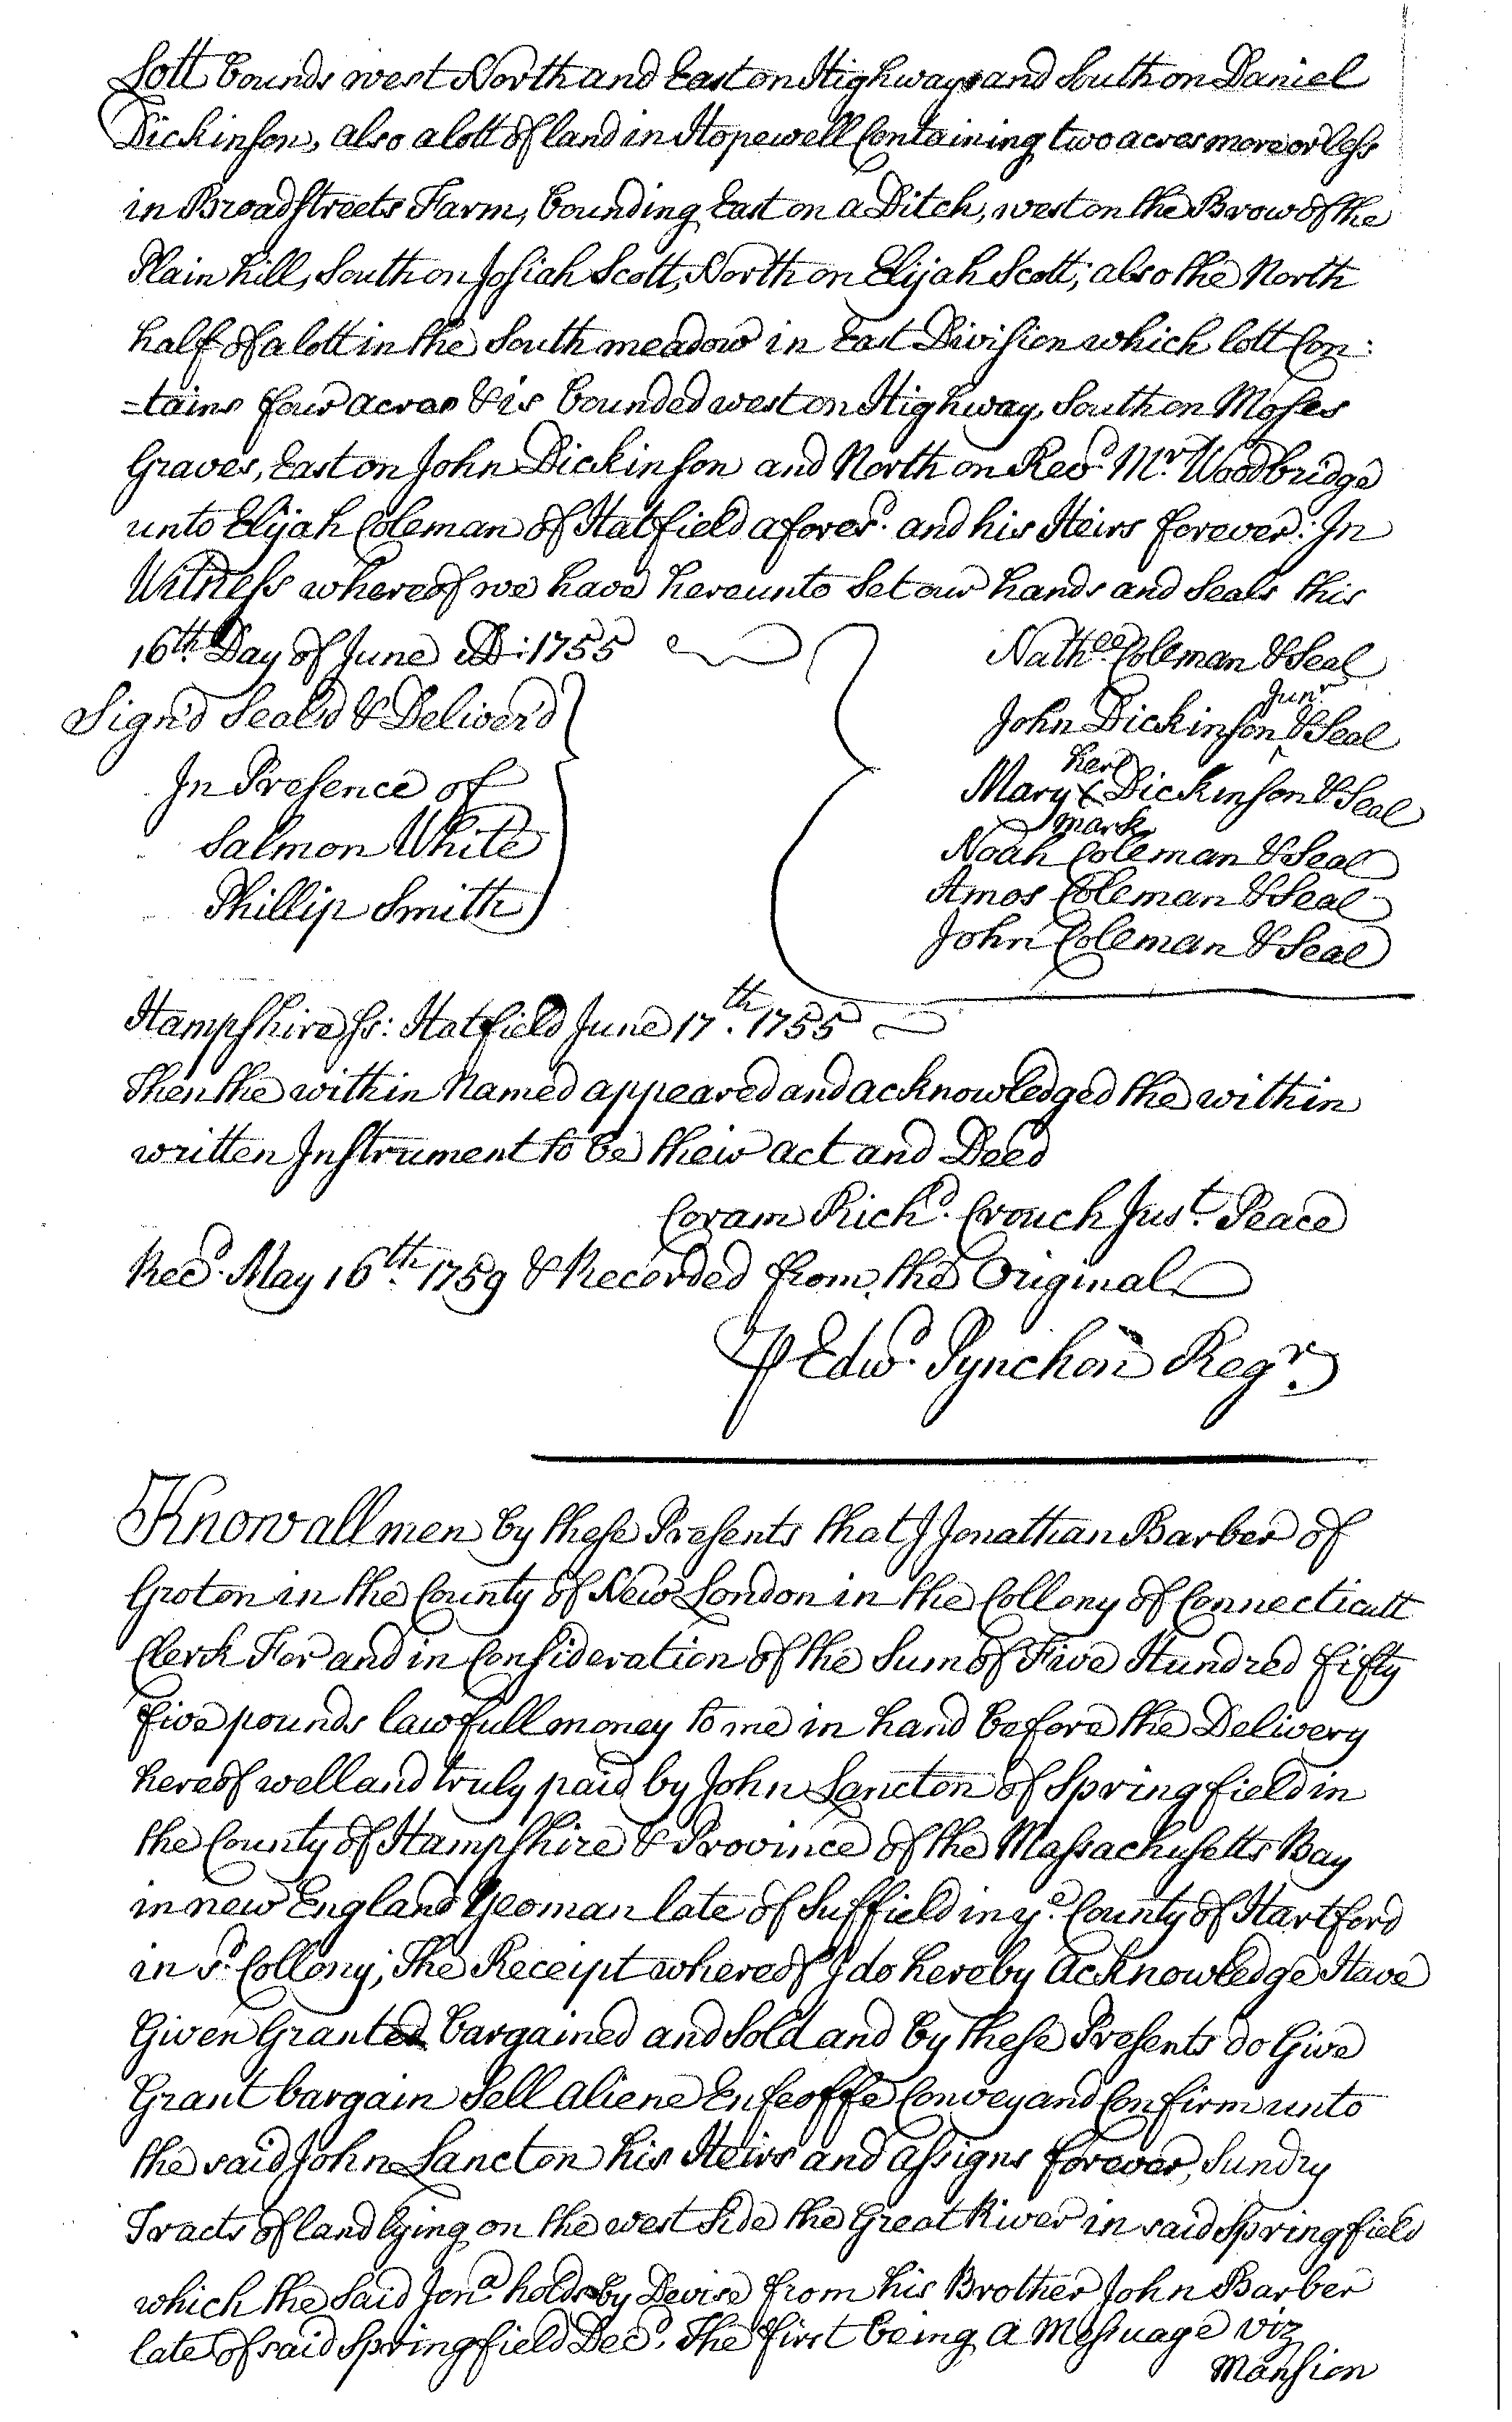 Lott bounds west North and East on Highways and South on Daniel
Dickinson, also a lott of land in Hopewell Containing two acres more or less
in Broadstreets Farm, bounding East on a Ditch, west on the Brow of the
Plain hill, South on Josiah Scott, North on Elijah Scott; also the North
half of a lott in the South meadow in East Division which lott Con:
=tains four acres & is bounded west on Highway, South on Moses
Graves, East on John Dickinson and North on Revd. Mr. Woodbridge
unto Elijah Coleman of Hatfield aforesd. and his Heirs forever: In
Witness whereof we have hereunto Set our hands and Seals this
16th. Day of June AD: 1755
Nathll. Coleman & Seal
Sign'd Seal'd & Deliver'd
Junr
John Dickinson ‸ & Seal
In Presence of
her
Mary X Dickinson & Seal
mark
Salmon White
Noah Coleman & Seal
Phillip Smith
Amos Coleman & Seal
John Coleman & Seal
Hampshire ss: Hatfield June 17th. 1755
Then the within Named appeared and acknowledged the within
written Instrument to be their act and Deed
Coram Richd. Crouch Just. Peace
Recd. May 16th. 1759 & Recorded from the Original
⅌ Edwd. Pynchon Regr.
Know all men by these Presents that I Jonathan Barber of
Groton in the County of New London in the Collony of Connecticutt
Clerk For and in Consideration of the Sum of Five Hundred fifty
five pounds lawfull money to me in hand before the Delivery
hereof well and truly paid by John Lancton of Springfield in
the County of Hampshire & Province of the Massachusetts Bay
in new England Yeoman late of Suffield in ye. County of Hartford
in sd. Collony; The Receipt whereof I do hereby Acknowledge Have
Given Granted bargained and Sold and by these Presents do Give
Grant bargain Sell aliene Enfeoffe Convey and Confirm unto
the said John Lancton his Heirs and assigns forever, Sundry
Tracts of land lying on the west Side the Great River in said Springfield
which the Said Jona holds by Devise from his Brother John Barber
late of said Springfield Decd. The first being a Messuage viz
Mansion